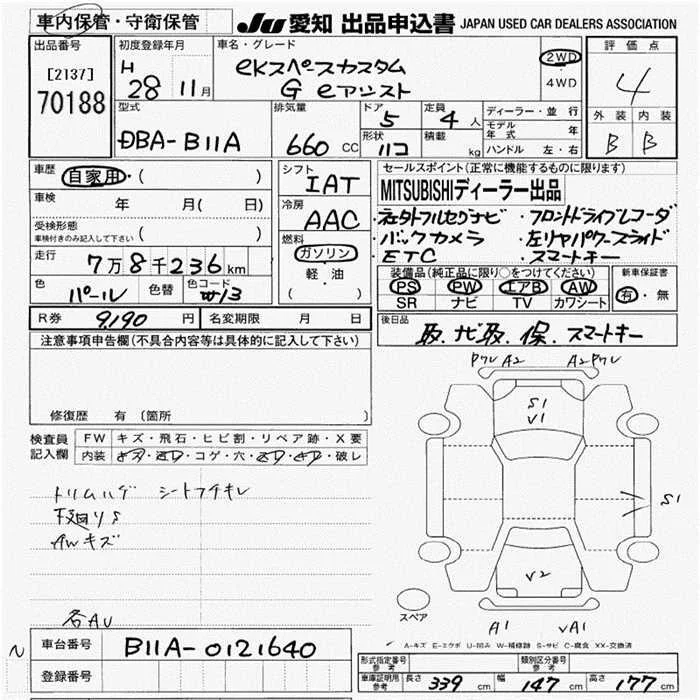 車内保管・守衛保管 JU 愛知 出品申込書 JAPAN USED CAR DEALERS ASSOCIATION
出品番号
[2137]
70188
初度登録年月
H 28 11月
車名・グレード
eKスペースカスタム
G eアシスト
2WD
4WD
評価点
4
外装 内装
B B
型式
DBA-B11A
排気量
660 CC
ドア
5
定員
4人
形状
ハコ
積載
kg
ディーラー・並行
モデル年式 年
ハンドル 左・右
車歴 自家用・( )
車検 年 月( 日)
受検形態
車検付きのみ記入して下さい ( )
走行 7万8千236km
色 パール 色替 色コード W13
シフト
IAT
冷房
AAC
燃料
ガソリン
軽・油
( )
セールスポイント(正常に機能するものに限ります)
MITSUBISHIディーラー出品
・社外フルセグナビ ・フロントドライブレコーダ
・バックカメラ ・左リヤパワースライド
ETC ・スマートキー
装備品(純正品に限り○をつけてください)
PS PW エアB AW
SR ナビ TV カワシート
新車保証書
有・無
R券 9,190 円 名変期限 月 日
後日品 取. ナビ取. 保. スマートキー
注意事項申告欄(不具合内容等は具体的に記入して下さい)
修復歴 有(箇所
検査員記入欄
FW キズ・飛石・ヒビ割・リペア跡・X要
内装 キズ・汚レ・コゲ・穴・・・破レ
トリムハゲ シートフチキレ
下廻りS
AWキズ
各AU
PワレA2 A2Pワレ
S1
V1
S1
V2
スペア
A1 VA1
A-キズ E-エクボ U-凹み W-補修跡 S-サビ C-腐食 XX-交換済
車台番号 B11A-0121640
登録番号
型式指定番号 参考
類別区分番号 参考
車庫証明用 参考 長さ 339 cm 幅 147 cm 高さ 177 cm